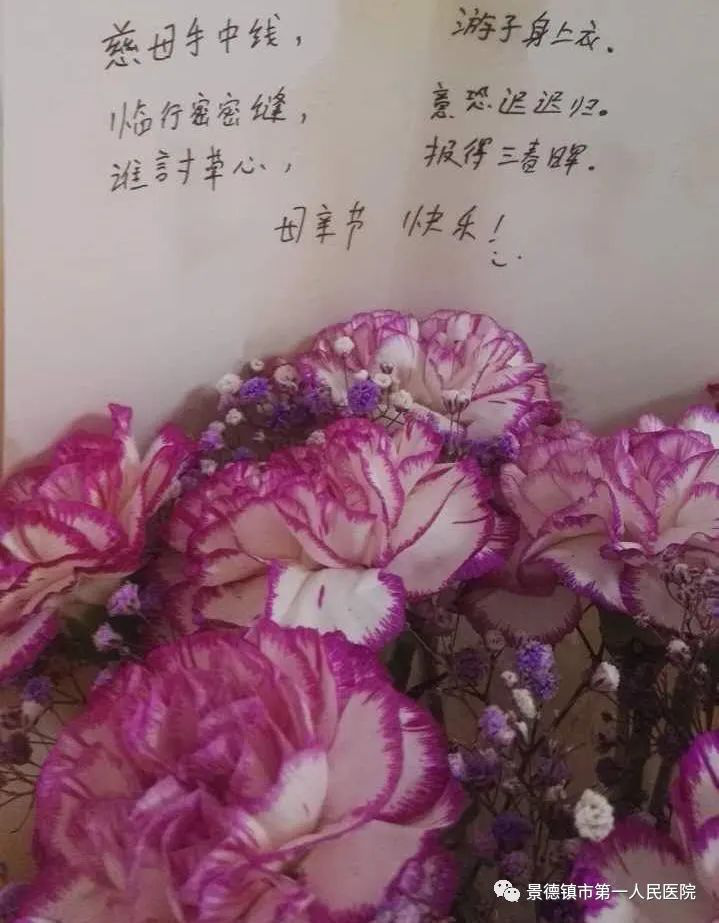 慈母手中线， 游子身上衣.
临行密密缝， 意恐迟迟归。
谁討草心， 报得三春暉.
母亲节 快乐！
景德镇市第一人民医院